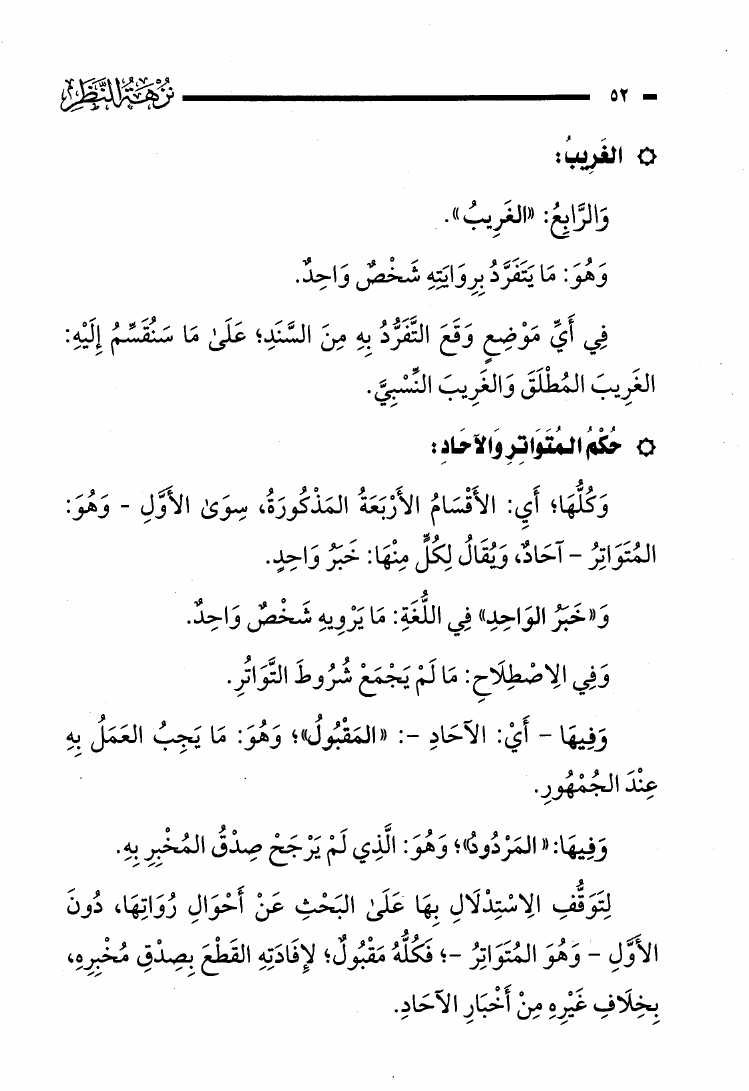 ٥٢ نُزْهَةُ النَّظَرِ
الغَرِيبُ:
وَالرَّابِعُ: «الغَرِيبُ».
وَهُوَ: مَا يَتَفَرَّدُ بِرِوَايَتِهِ شَخْصٌ وَاحِدٌ.
فِي أَيِّ مَوْضِعٍ وَقَعَ التَّفَرُّدُ بِهِ مِنَ السَّنَدِ؛ عَلَىٰ مَا سَنُقَسِّمُ إِلَيْهِ:
الغَرِيبَ المُطْلَقَ وَالغَرِيبَ النِّسْبِيَّ.
حُكْمُ المُتَوَاتِرِ وَالآحَادِ:
وَكُلُّهَا؛ أَيِ: الأَقْسَامُ الأَرْبَعَةُ المَذْكُورَةُ، سِوَىٰ الأَوَّلِ - وَهُوَ:
المُتَوَاتِرُ - آحَادٌ، وَيُقَالُ لِكُلٍّ مِنْهَا: خَبَرُ وَاحِدٍ.
وَ«خَبَرُ الوَاحِدِ» فِي اللُّغَةِ: مَا يَرْوِيهِ شَخْصٌ وَاحِدٌ.
وَفِي الِاصْطِلَاحِ: مَا لَمْ يَجْمَعْ شُرُوطَ التَّوَاتُرِ.
وَفِيهَا - أَيْ: الآحَادِ -: «المَقْبُولُ»؛ وَهُوَ: مَا يَجِبُ العَمَلُ بِهِ
عِنْدَ الجُمْهُورِ.
وَفِيهَا: «المَرْدُودُ»؛ وَهُوَ: الَّذِي لَمْ يَرْجَحْ صِدْقُ المُخْبِرِ بِهِ.
لِتَوَقُّفِ الِاسْتِدْلَالِ بِهَا عَلَىٰ البَحْثِ عَنْ أَحْوَالِ رُوَاتِهَا، دُونَ
الأَوَّلِ - وَهُوَ المُتَوَاتِرُ -؛ فَكُلُّهُ مَقْبُولٌ؛ لِإِفَادَتِهِ القَطْعَ بِصِدْقِ مُخْبِرِهِ،
بِخِلَافِ غَيْرِهِ مِنْ أَخْبَارِ الآحَادِ.